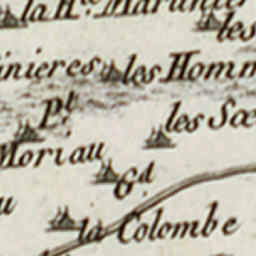 la H.te Mardnier
les
inieres les Homm
P.t les Sœ
Moriau
G.d
u
la Colombe